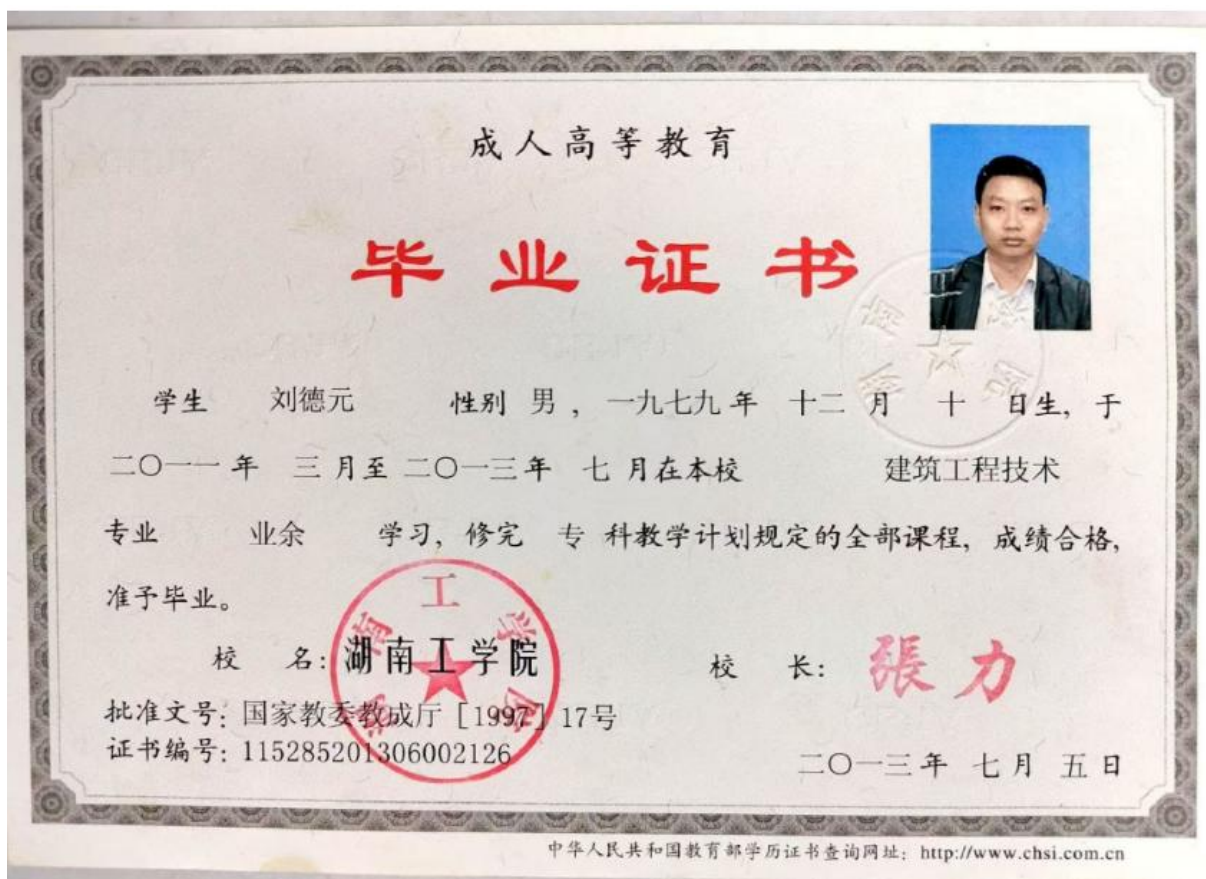 成人高等教育
毕业证书
学生 刘德元 性别 男，一九七九年 十二 月 十 日生，于
二〇一一年 三月至二〇一三年 七月在本校 建筑工程技术
专业 业余 学习，修完 专 科教学计划规定的全部课程，成绩合格，
准予毕业。
校 名：湖南工学院
校 长：張力
批准文号：国家教委教成厅［1997］17号
证书编号：115285201306002126
二〇一三年 七月 五日
湖南工学院
中华人民共和国教育部学历证书查询网址：http://www.chsi.com.cn